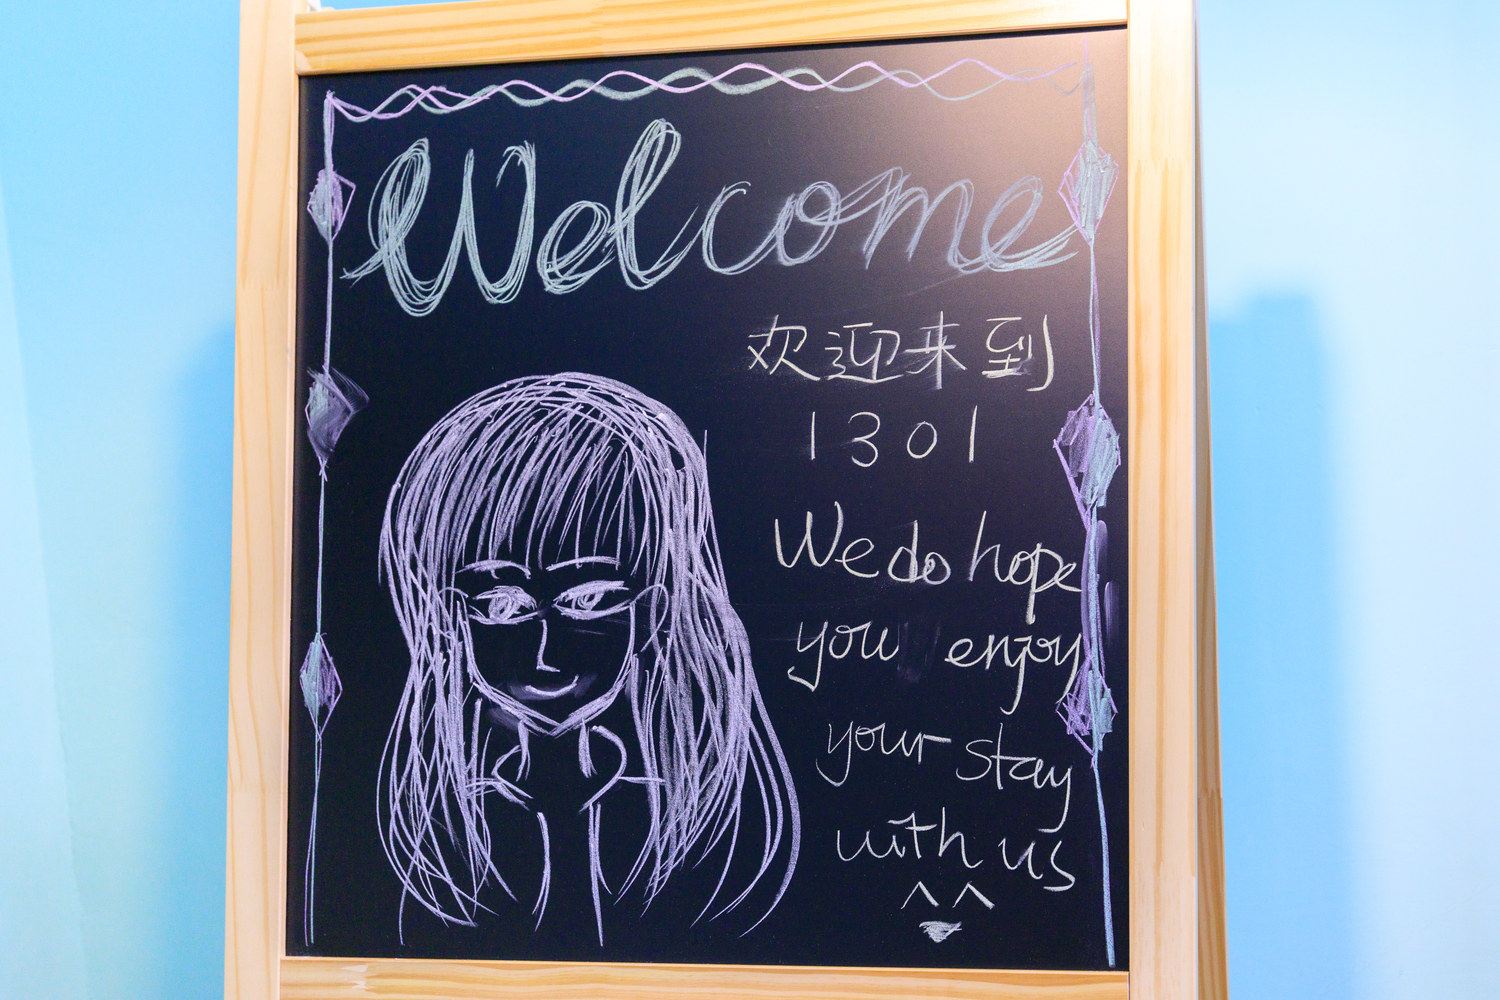 Welcome
欢迎来到
1301
We do hope
you enjoy
your stay
with us
^ ^